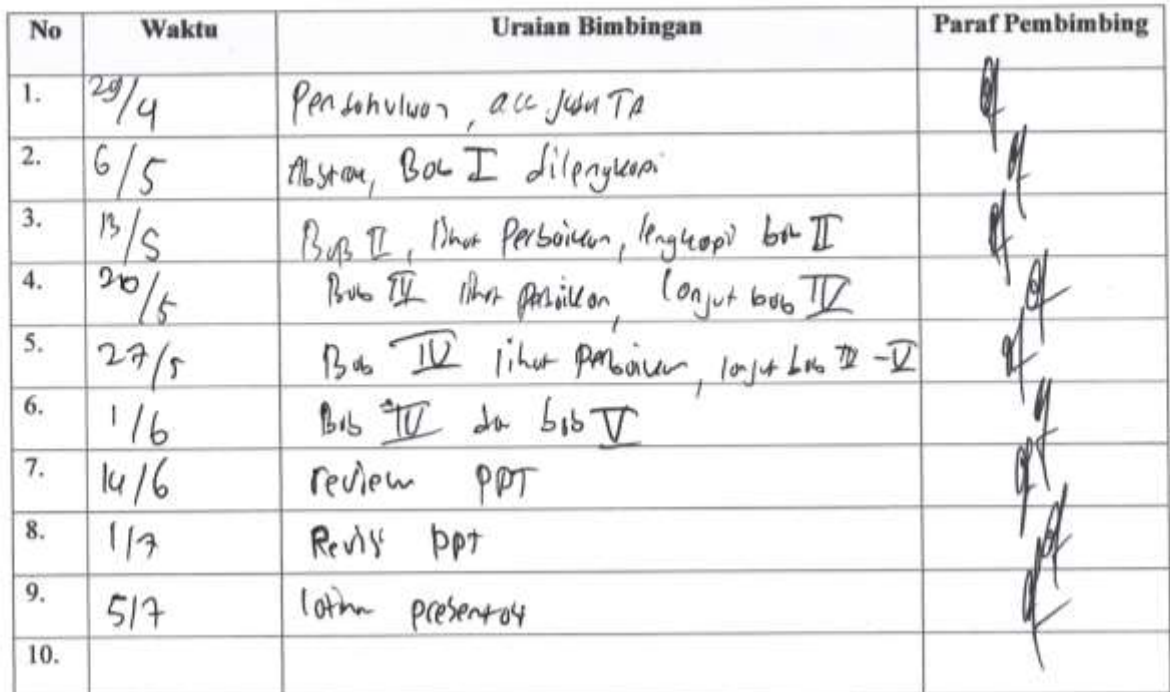 No Waktu Uraian Bimbingan Paraf Pembimbing
1. 29/4 Pendahuluan, acc judul TA
2. 6/5 Abstrak, Bab I dilengkapi
3. 13/5 Bab II, lihat Perbaikan, lengkapi bab II
4. 20/5 Bab IV lihat perbaikan, lanjut bab IV
5. 27/5 Bab IV lihat perbaikan, lanjut bab IV - V
6. 1/6 Bab IV da bab V
7. 14/6 review PPT
8. 1/7 Revisi ppt
9. 5/7 latihan presentasi
10.